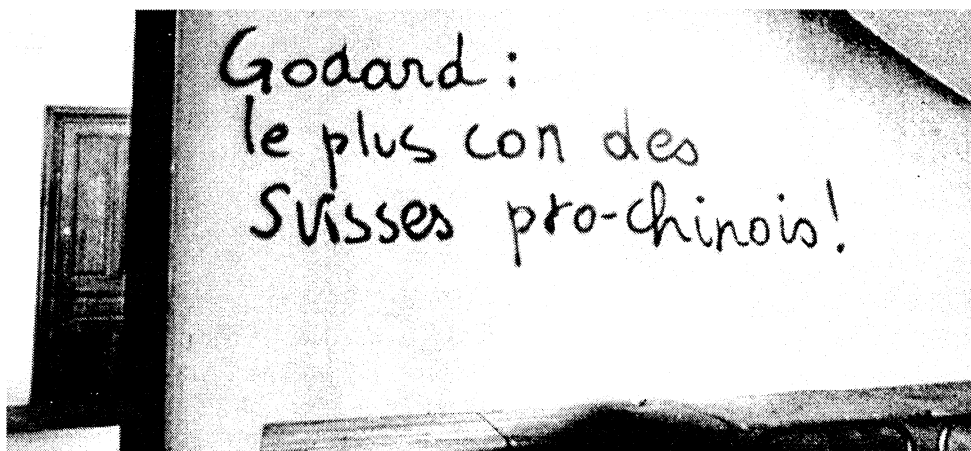 Godard :
le plus con des
Suisses pro-chinois!